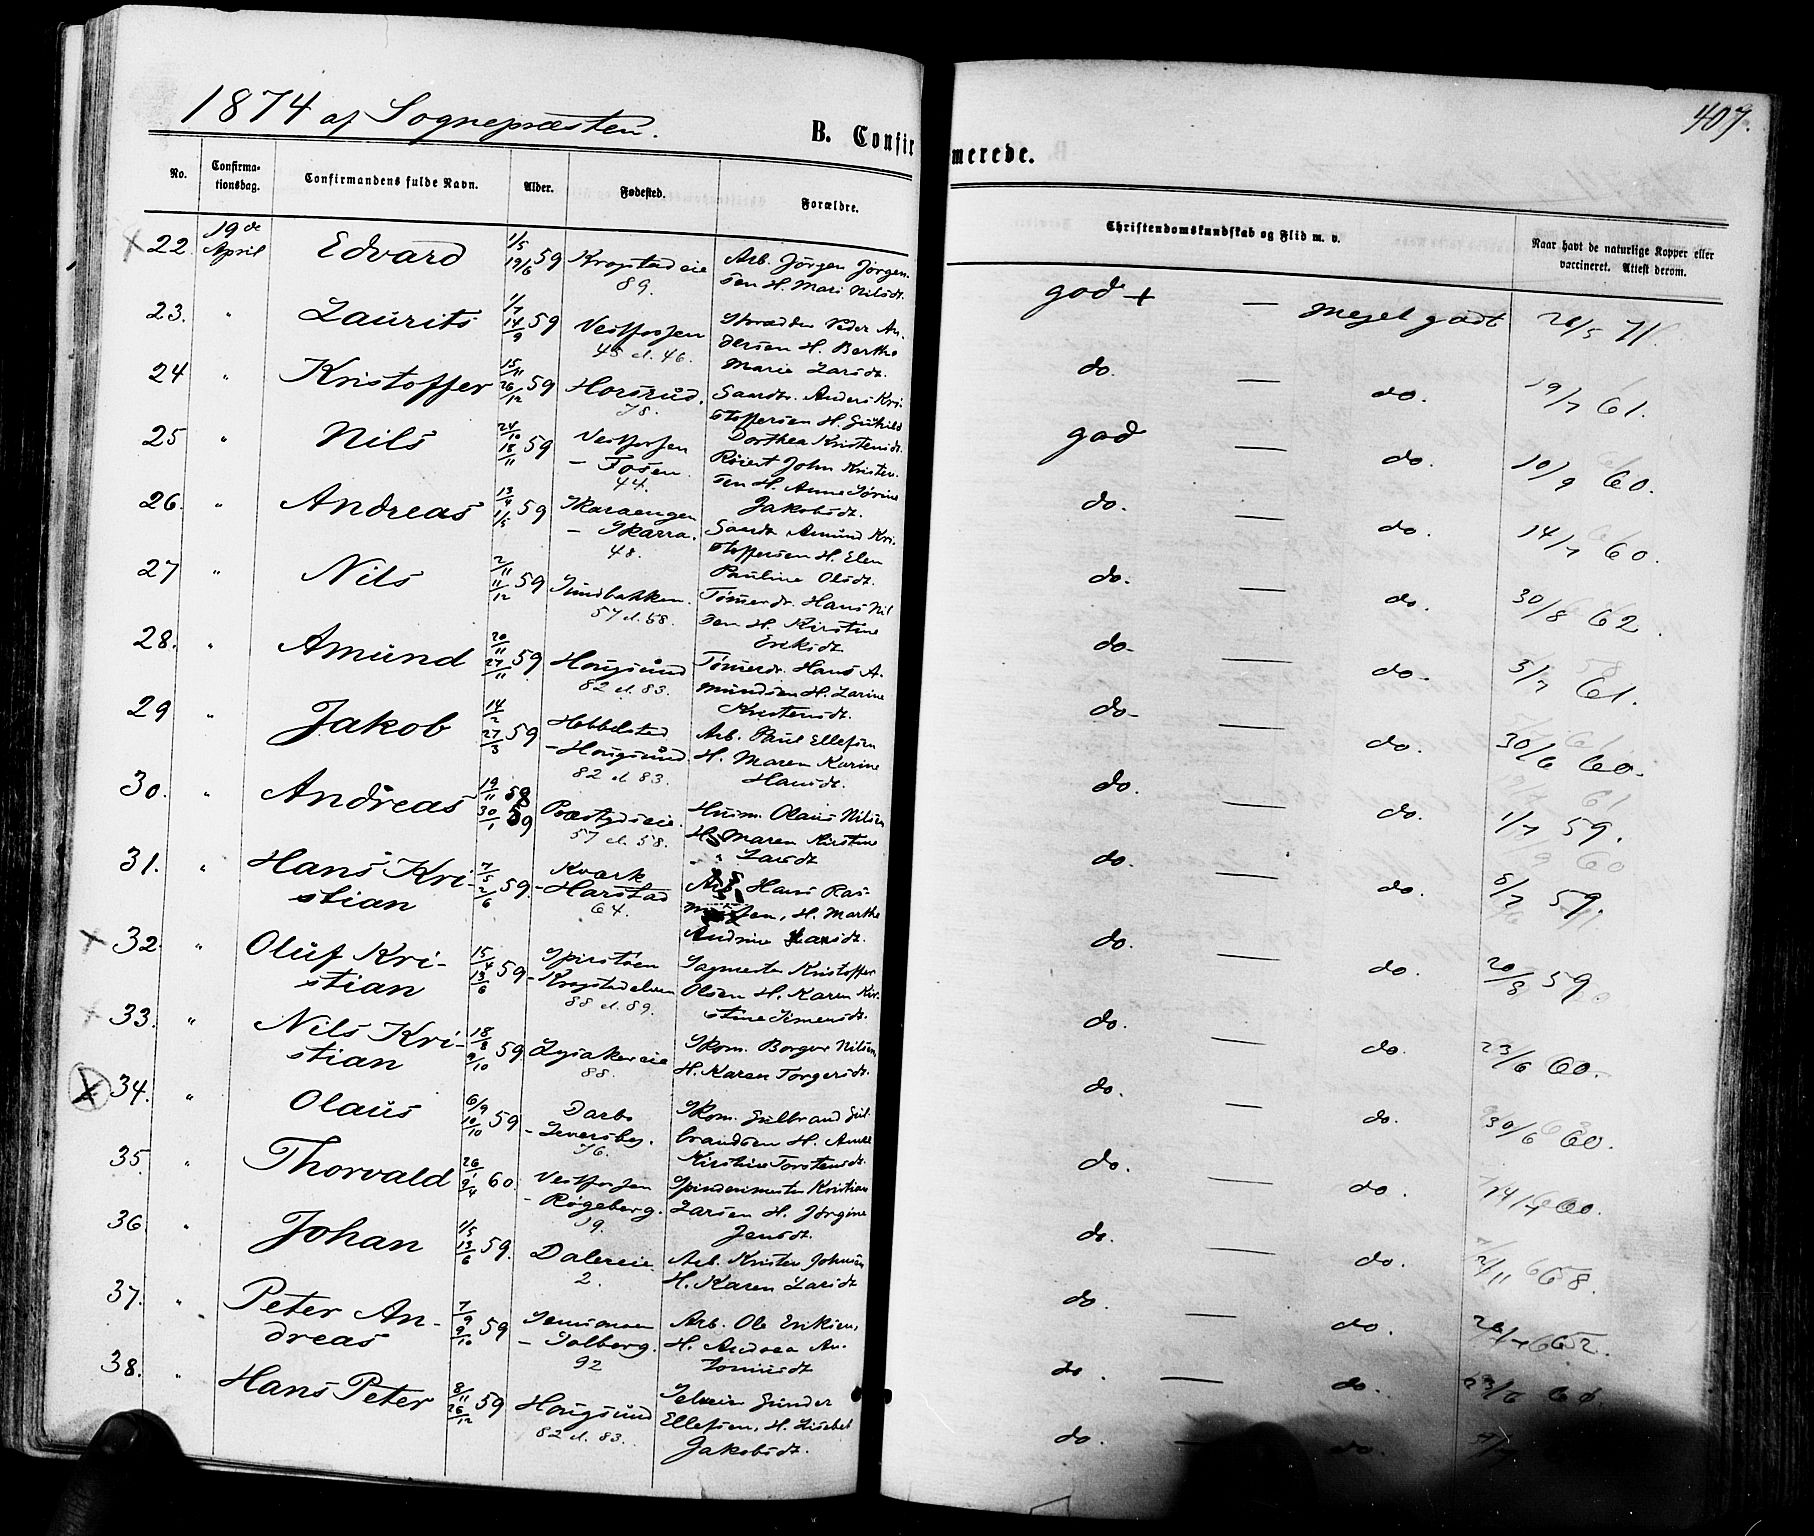 1874 af Sognepræsten.
B. Confirmerede.
407.
No.
Confirma-
tionsdag.
Confirmandens fulde Navn.
Alder.
Fødested.
Forældre.
Christendomskundskab og Flid m. v.
Naar havt de naturlige Kopper eller
vaccineret. Attest derom.
22 19de April Edvard 1/5 19/6 59 Krogstadeie 89. Arb. Jörgen Jörgen-
sen H. Mari Nilsdt.
god + — meget godt 28/5 71.
23. " Laurits 1/7 14/9 59 Vestfossen 45 el. 46. Skrædder Peder An-
dersen H. Berthe
Marie Larsdt.
do. — do. 19/7 61.
24 " Kristoffer 15/11 26/12 59 Horsrud. 78. Gaardbr. Anders Kri-
stoffersen H. Gunhild
Dorthea Kristensdt.
god — do. 10/9 60.
25 " Nils 24/10 18/11 59 Vestfossen
- Fosen. 44. John Kristen-
sen H. Anne Sørine
Jakobsdt.
do. — do. 14/7 60.
26. " Andreas 13/4 1/5 59 Skaraengen
- Skarra. 48. Gaardbr Amund Kri-
stoffersen H. Elen
Pauline Olsdt.
do. — do. 30/8 62.
27 " Nils 2/11 11/12 59 Sundbakken. 57 el. 58. Tømmerdr. Hans Nil
sen H. Kirstine
Eriksdt
do. — do. 3/7 61.
28. " Amund 20/11 27/11 59 Hougsund 82 el. 83. Tømmerdr. Hans A-
mundsen H. Larine
Kristensdt.
do. — do. 30/6 60.
29 " Jakob 14/2 27/3 59 Hobbelstad
- Hougsund. 82 el. 83. Arb. Paul Ellefsen
H. Maren Karine
Hansdt.
do. — do. 1/7 59.
30. " Andreas 19/11 58 30/1 59 Præstgdseie. 57 el. 58. Husm. Olaus Nilsen
H. Maren Kirstine
Larsdt
do. — do. 8/7 59.
31. " Hans Kri-
stian 7/5 2/6 59. Kvark
- Harstad 64. Arb. Hans Ras-
mussen, H. Marthe
Andrine Larsdt.
do. — do. 20/8 59
32. " Oluf Kri-
stian 15/4 13/6 59 Spirstøen
- Krogstadelven 88 el. 89. Sagmester Kristoffer
Olsen H. Karen Kir-
stine Simensdt.
do. — do. 23/6 60.
33. " Nils Kri-
stian 18/8 9/10 59 Lysakereie 88. Skom. Borger Nilsen,
H. Karen Torgersdt.
do. — do. 30/6 60.
34. " Olaus 6/9 10/10 59 Darbo
- Iversbg. 76. Skom. Gulbrand Gul-
brandsen H. Anne
Kirstine Torstensdt.
do. — do. 60.
35. " Thorvald 26/1 9/4 60. Vestfossen
- Røgeberg. 19. Spinderimester Kristian
Larsen H. Jørgine
Jensdt.
do. — do. 2/11 68
36 " Johan 1/5 13/6 59. Dalereie 2. Arb. Kristen Johnsen
H. Karen Larsdt
do. — do. 62.
37. " Peter An-
dreas 7/9 9/10 59 - Solberg. 92 Arb. Ole Eriksen,
H. Andrea An-
tonsdt
do. — do. 23/6 60.
38. " Hans Peter 8/11 26/12 59 Hougsund 82 el. 83. Gunder
Ellefsen, H. Lisebet
Jakobsdt.
do. — do.